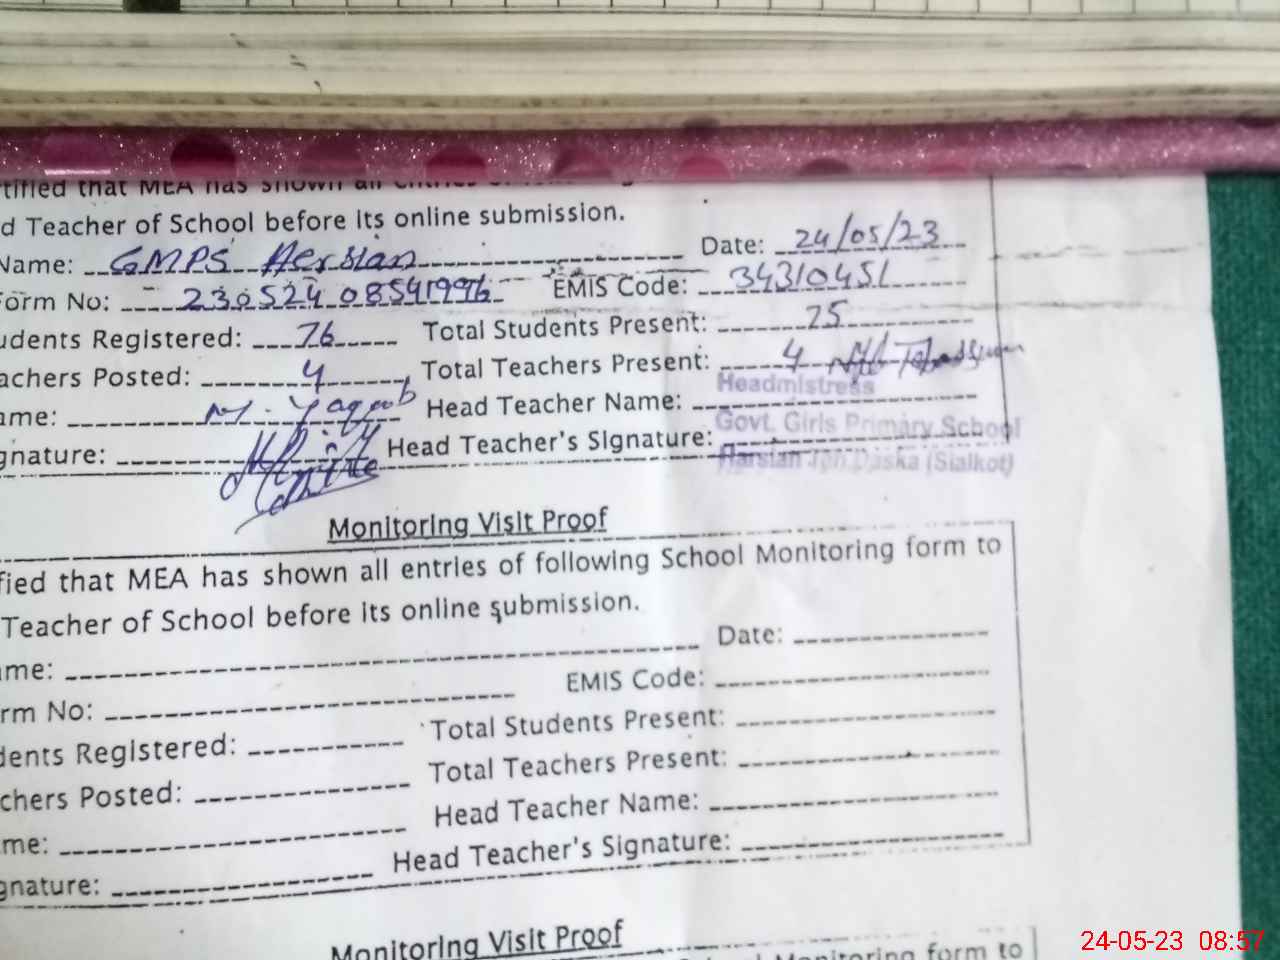 tified that MEA has shown all entries
d Teacher of School before its online submission.
Name: GMPS Harsian Date: 24/05/23
orm No: 230524 08541996 EMIS Code: 34310451
udents Registered: 76 Total Students Present: 75
achers Posted: 4 Total Teachers Present: 4
ame: M. Yaqoob Head Teacher Name:
Headmistress
gnature: Head Teacher's Signature:
Govt. Girls Primary School
Harsian Teh Daska (Sialkot)
Monitoring Visit Proof
fied that MEA has shown all entries of following School Monitoring form to
Teacher of School before its online submission.
ame: Date:
rm No: EMIS Code:
dents Registered: Total Students Present:
chers Posted: Total Teachers Present:
me: Head Teacher Name:
gnature: Head Teacher's Signature:
Monitoring Visit Proof
School Monitoring form to
24-05-23 08:57